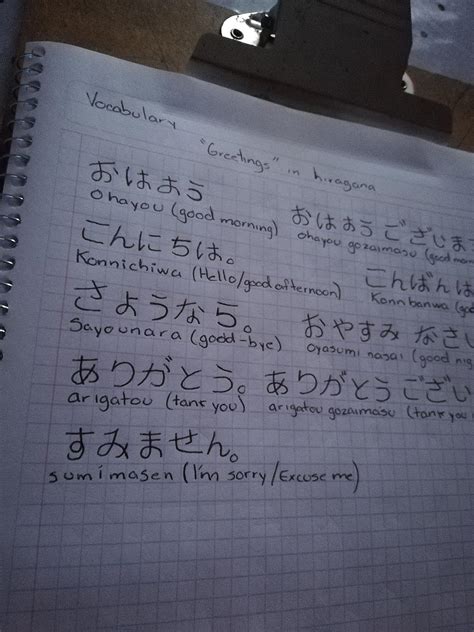 Vocabulary
"Greetings" in hiragana
おはよう おはよう ございま
ohayou (good morning) ohayou gozaimasu (good mor
こんにちは。 こんばんは
Konnichiwa (Hello/good afternoon) Konnbanwa (go
さようなら。 おやすみ なさい
Sayounara (good-bye) oyasumi nasai (good nig
ありがとう。 ありがとう ござい
arigatou (tank you) arigatou gozaimasu (tank you
すみません。
sumimasen (I'm sorry/Excuse me)